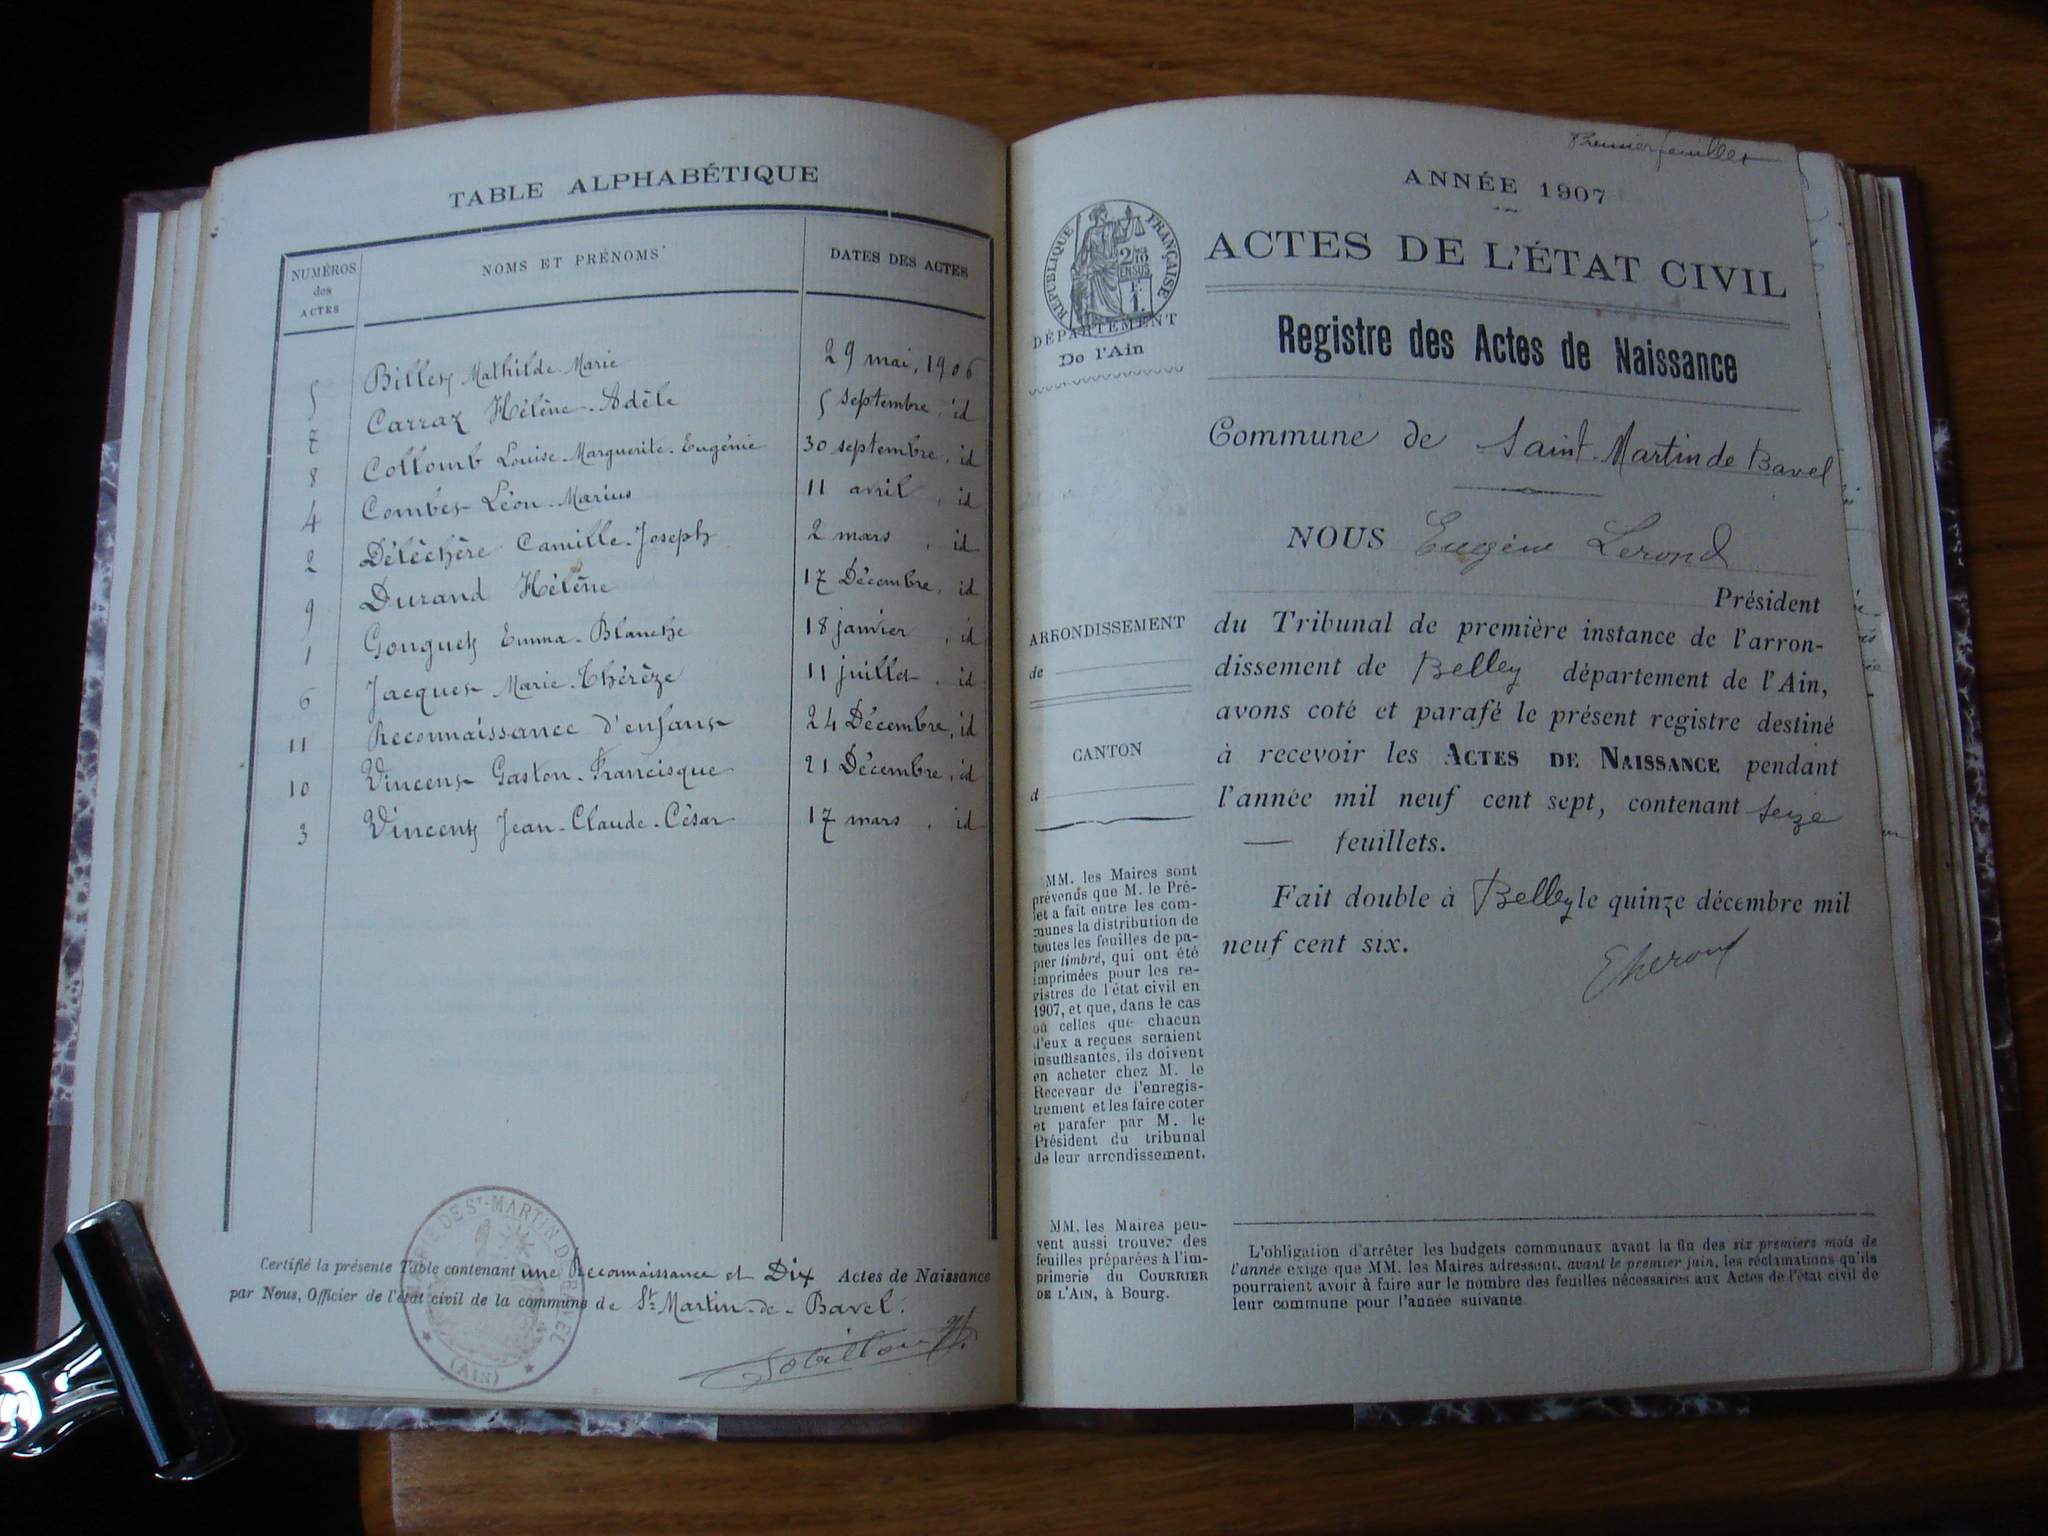 TABLE ALPHABÉTIQUE
NUMÉROS des ACTES
NOMS ET PRÉNOMS
DATES DES ACTES
5 Billet Mathilde-Marie 29 mai, 1906
7 Carraz Hélène-Adèle 5 septembre, id
8 Collomb Louise-Marguerite-Eugénie 30 septembre, id
4 Combet Léon-Marius 11 avril, id
2 Déléchère Camille-Joseph 2 mars, id
9 Durand Hélène 17 Décembre, id
1 Gonguet Emma-Blanche 18 janvier, id
6 Jacquet Marie-Thérèze 11 juillet, id
11 Reconnaissance d'enfant 24 Décembre, id
10 Vincent Gaston-Francisque 21 Décembre, id
3 Vincent Jean-Claude-César 17 mars, id
Certifié la présente Table contenant une Reconnaissance et Dix Actes de Naissance
par Nous, Officier de l'état civil de la commune de St-Martin-de-Bavel.
MAIRIE DE ST-MARTIN DE BAVEL
(AIN)
Premier feuillet
ANNÉE 1907
ACTES DE L'ÉTAT CIVIL
RÉPUBLIQUE FRANÇAISE
DÉPARTEMENT
De l'Ain
Registre des Actes de Naissance
Commune de Saint-Martin de Bavel
NOUS Eugène Lerond
Président
du Tribunal de première instance de l'arron-
dissement de Belley département de l'Ain,
avons coté et parafé le présent registre destiné
à recevoir les ACTES DE NAISSANCE pendant
l'année mil neuf cent sept, contenant seize
feuillets.
Fait double à Belley le quinze décembre mil
neuf cent six.
ARRONDISSEMENT
de
CANTON
d
MM. les Maires sont
prévenus que M. le Pré-
fet a fait entre les com-
munes la distribution de
toutes les feuilles de pa-
pier timbré, qui ont été
imprimées pour les re-
gistres de l'état civil en
1907, et que, dans le cas
où celles que chacun
d'eux a reçues seraient
insuffisantes, ils doivent
en acheter chez M. le
Receveur de l'enregis-
trement et les faire coter
et parafer par M. le
Président du tribunal
de leur arrondissement.
MM. les Maires peu-
vent aussi trouver des
feuilles préparées à l'im-
primerie du COURRIER
DE L'AIN, à Bourg.
L'obligation d'arrêter les budgets communaux avant la fin des six premiers mois de
l'année exige que MM. les Maires adressent, avant le premier juin, les réclamations qu'ils
pourraient avoir à faire sur le nombre des feuilles nécessaires aux Actes de l'état civil de
leur commune pour l'année suivante.